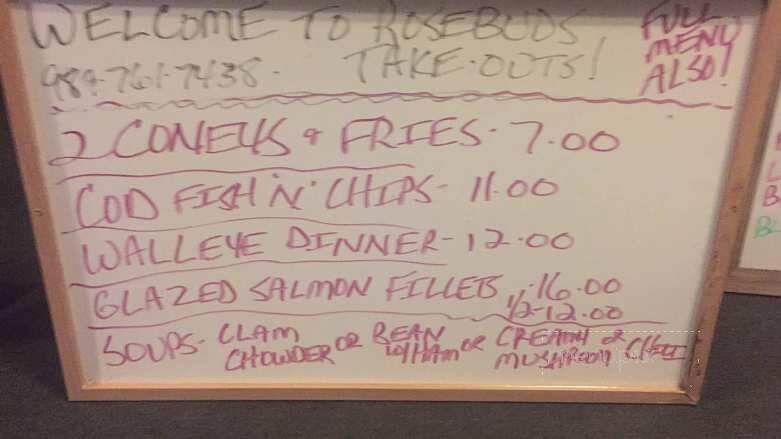 WELCOME TO ROSEBUDS
989-761-7438. TAKE-OUTS!
FULL
MENU
ALSO!
2 CONEYS & FRIES - 7.00
COD FISH 'N' CHIPS - 11.00
WALLEYE DINNER - 12.00
GLAZED SALMON FILLETS - 16.00
1/2 - 12.00
SOUPS - CLAM CHOWDER OR BEAN W/HAM OR CREAM OF MUSHROOM